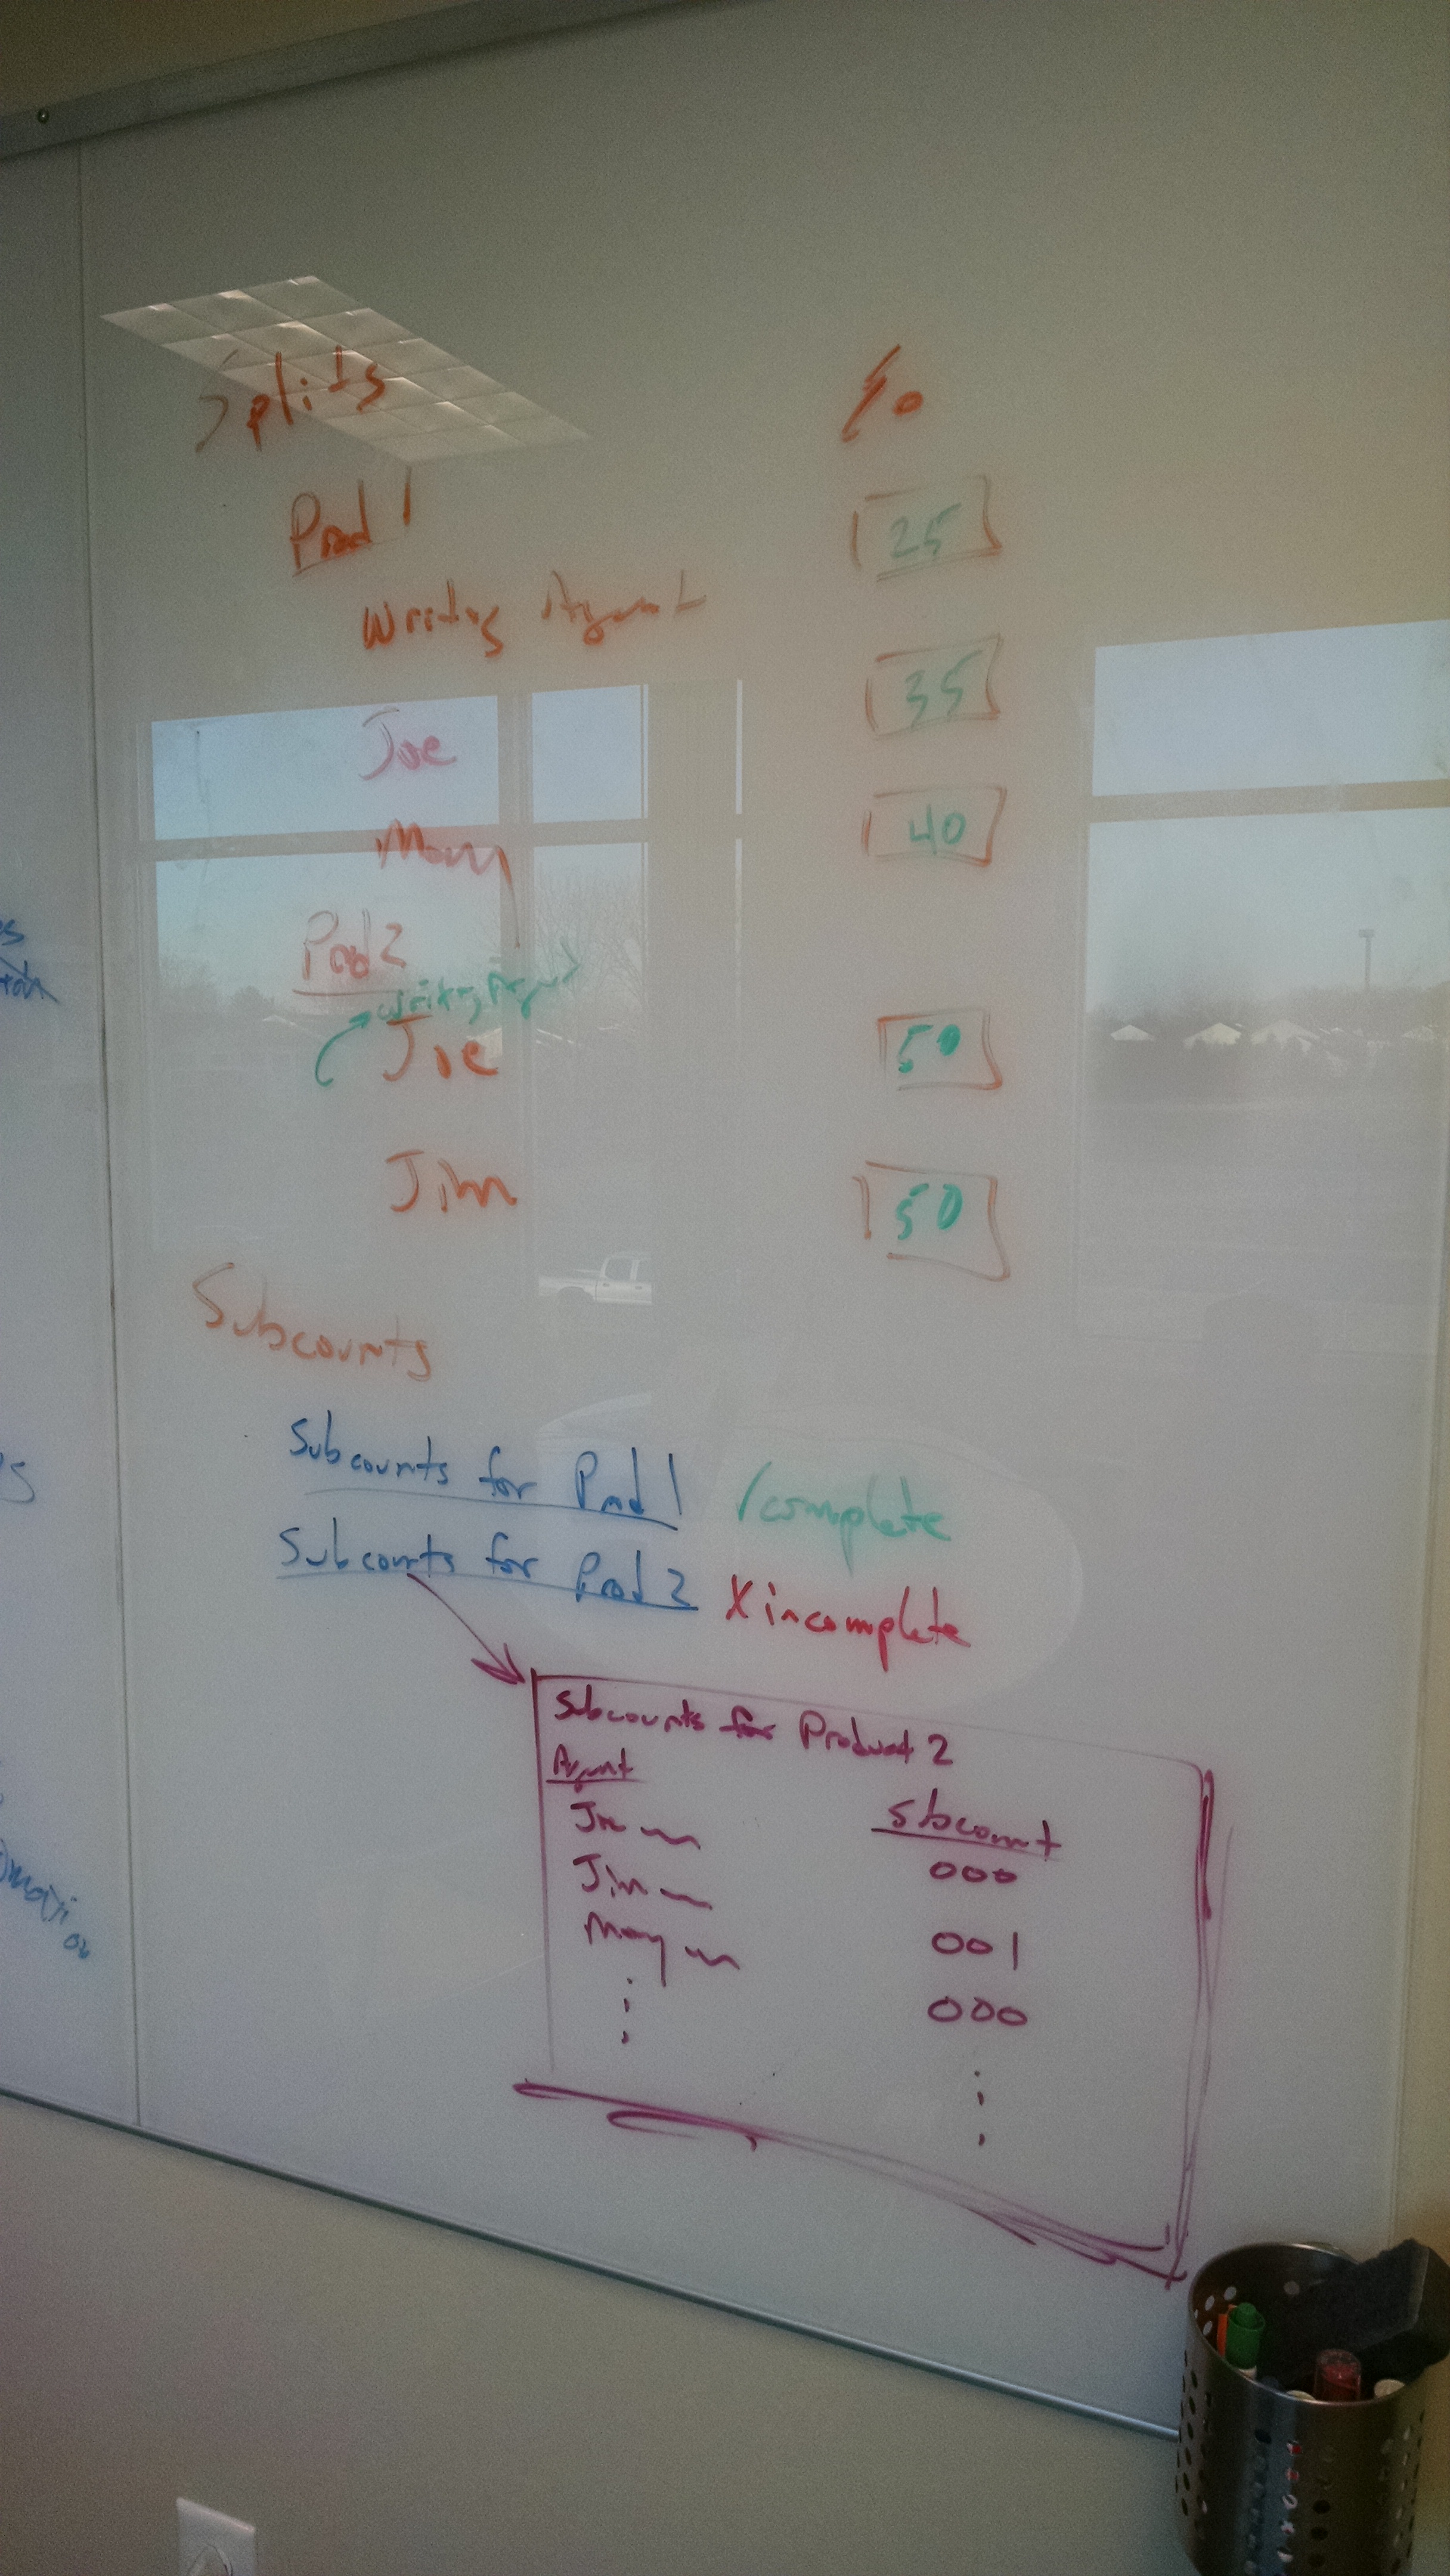 Splits %
Prod 1 25
Writing Agent 35
Joe 40
Mary
Prod 2
Writing Agent
Joe 50
Jim 50
Subcounts
Subcounts for Prod 1 /complete
Subcounts for Prod 2 X incomplete
Subcounts for Product 2
Agent Sbcount
Joe 000
Jim 001
Mary 000